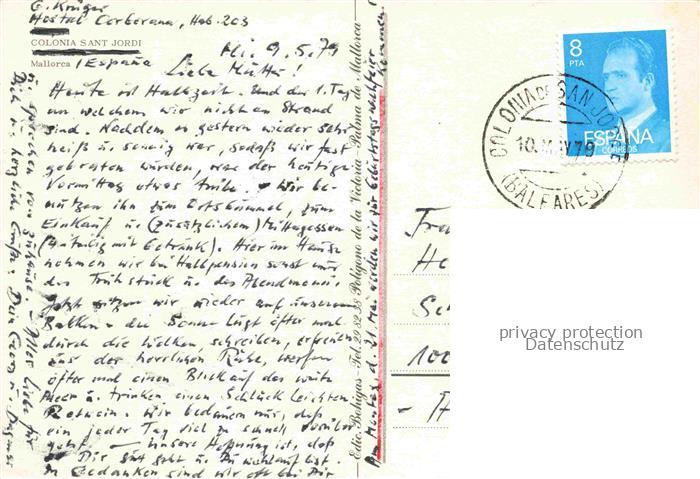 G. Krüger
Hostal Corberana, Hab. 203
COLONIA SANT JORDI
Mallorca /España
Mi. 9.5.79
Liebe Mutter!
Heute ist Halbzeit. Und der 1. Tag
an welchem wir nicht am Strand
sind. Nachdem es gestern wieder sehr
heiß u. sonnig war, sodaß wir fast
gebraten wurden, war der heutige
Vormittag etwas trübe. Wir be-
nutzen ihn zum Ortsbummel, zum
Einkauf u. (zusätzlichem) Mittagessen
mit Getränk). Hier im Hause
nehmen wir bei Halbpension sonst nur
das Frühstück u. das Abendmahl.
Jetzt sitzen wir wieder auf unserem
Balkon - die Sonne lugt öfter mal
durch die Wolken, schreiben, erfreuen
uns der herrlichen Ruhe, werfen
öfter mal einen Blick auf das weite
Meer u. trinken einen Schluck leichten
Rotwein. Wir bedauern nur, daß
ein jeder Tag viel zu schnell vorüber
geht. — Unsere Hoffnung ist, daß
es Dir gut geht u. Du wohlauf bist.
In Gedanken sind wir oft bei Dir
u. sprechen von zuhause. Alles Liebe für
Dich u. herzliche Grüße Dein Georg u. Dagmar
Am Montag, d. 21. Mai werden wir zur Geburtstagsnachfeier
kommen.
Edic. Bohigas - Tel. 29 82 38 Polígono de la Victoria - Palma de Mallorca
8
PTA
ESPAÑA
CORREOS
COLONIA DE SAN JORDI
10 MAY 79
(BALEARES)
privacy protection
Datenschutz